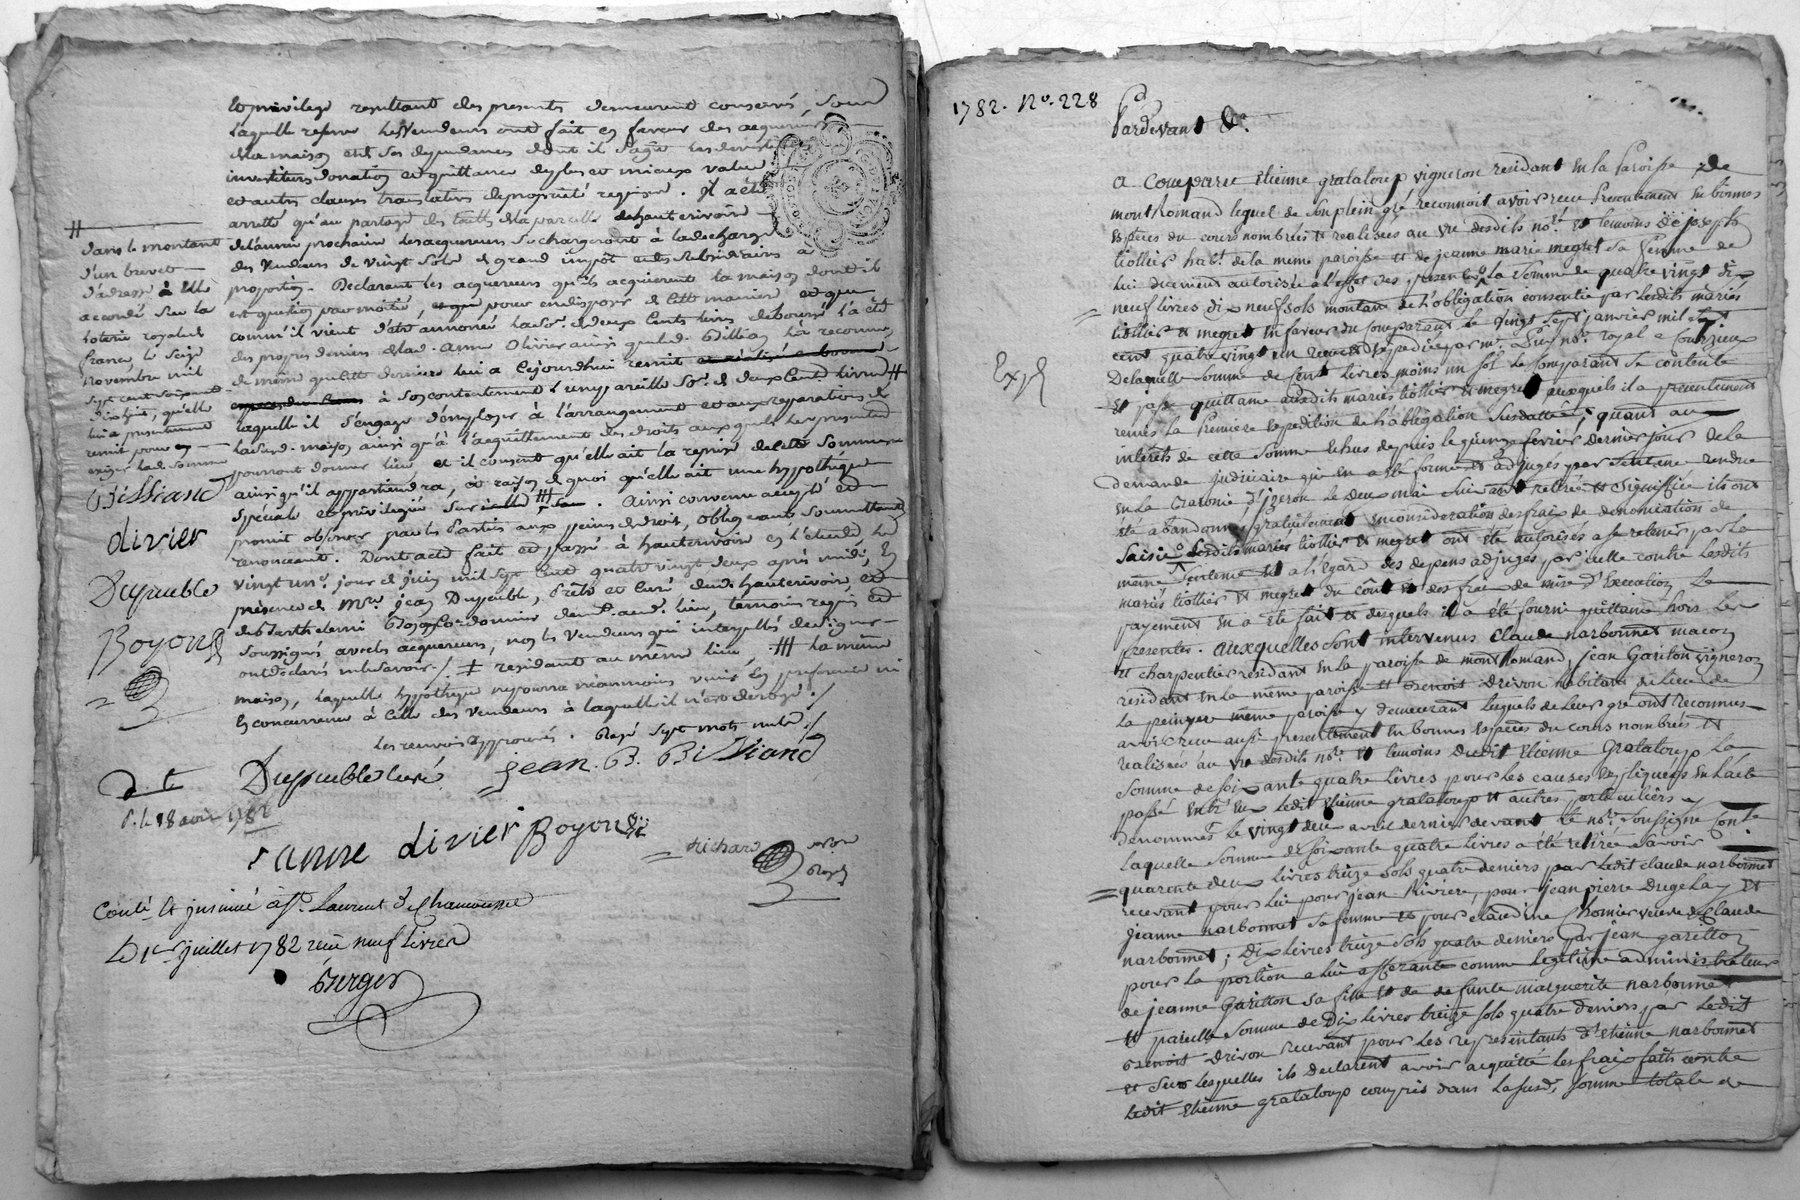 et privilege resultant des presentes demeurent conservés, sous
laquelle reserve les Vendeurs ont fait en faveur des acquereurs
de la maison et de ses dependances dont il s'agit les devestitures
investitures donation et quittance de plus et mieux value
et autres clauses translatives de proprieté requises. Il a été
arretté qu'au partage des taults de la parcelle de hauterivoire
de l'année prochaine les acquereurs se chargeront à la decharge
des Vendeurs de vingt sols de grand impôt et des subsidiaires à
proportion. Declarant les acquereurs qu'ils acquierent la maison dont il
est question par moitié, pour en disposer de cette maniere et que
comm'il vient d'etre annoncé la so. de deux cents livres deboursé l'a été
des propres deniers de lad. anne Olivier ainsi que led. Billian l'a reconnu
de même que cette derniere lui a cejourdhui remit
à son contentement une pareille so. de deux cent livres #
laquelle il s'engage d'employer à l'arrangement et aux reparations de
lasusd. maison ainsi qu'à l'acquittement des droits auxquels les presentes
pourront donner lieu et il consent qu'elle ait la reprise de cette somme
ainsi qu'il appartiendra, et raison de quoi qu'elle ait une hypothéque
spéciale et privilegiée sur icelle. Ainsi convenu accepté et
promit observer par les Parties aux peines de Droit, obligeant soumettant
renonceant. Dont acte fait et passé à hauterivoire en l'etude le
vingt un.e jour de juin mil sept cent quatre vingt deux après midi; En
présence de Mre. jean Dupuble, Prêtre et curé dud. hauterivoire, et
de Barthelemi Boyon dem.t aud. lieu, temoins requis et
soussignés avec les acquereurs, non les Vendeurs qui interpellés de signer
ont declarés ne le savoir ./. ‡ residant au même lieu, ## la même
maison, laquelle hypotheque ne pourra néanmoins venir en preference ni
en concurrence à celle des Vendeurs à laquelle il n'est derogé ./
Les renvois approuvés. Rayé sept mots nuls ./
# dans le montant
d'un brevet
d'adresse à elle
accordé sur la
loterie royale de
france le seize
novembre mil
sept cent soixante
dix huit, qu'elle
lui a presentement
remit pour en
exiger lad. somme
Billiand
olivier
Dupuble
Boyon
Dupuble curé
jean. B. Billiand
P. le 18 aoust 1782
anne olivier Boyon
Richard
Contlé et insinué à St. Laurent de Chamousset
Le 1er juillet 1782 recu neuf livres
Berger
1782. No. 228
Pardevant &a.
Exp.d
a Comparu etienne grataloup vigneron residant en la Paroisse de
montRomand lequel de son plein gré reconnoit avoir reçu Presentement en bonnes
espèces du cours nombrées et realisées au vu desdits no.re et temoins de joseph
tiollier hab.t de la meme paroisse et de jeanne marie megret sa femme de
lui duement autorisée a l'effet des presentes, la somme de quatre vingt dix
neuf livres dix neuf sols montant de l'obligation consentie par lesdits mariés
tiollier et megret en faveur du Comparant le vingt sept janvier mil sept
cent quatre vingt un recue et expediée par me. no.re royal a Courzieux
De laquelle somme de cent livres moins un sol le Comparant se contente
et passe quittance auxdits mariés tiollier et megret auxquels il a presentement
remis la Premiere expedition de l'obligation susdattée; quant aux
interêts de cette somme echus depuis le quinze fevrier dernier jour de la
demande judiciaire qui en a été formée et adjugés par sentence rendue
en la Baronie d'yzeron le deux mai suivant retirée et signiffiée ils ont
été abandonnés gratuitement en consideration des frais de denonciation de
saisie lesdits mariés tiollier et megret ont été autorisés a se retenir par la
même sentence et a l'egard des depens adjugés par icelle contre lesdits
mariés tiollier et megret du coût et des frais de mise d'Execution le
payement en a été fait et desquels il a été fourni quittance hors les
presentes. auxquelles sont intervenus Claude narbonnet maçon
et charpentier residant en la paroisse de montRomand, jean Gariton vigneron
residant en la même paroisse et Benoit Drivon habitant du lieu de
la même paroisse y demeurant lesquels de leur gré ont reconnus
avoir recu aussi presentement en bonnes espèces du cours nombrées et
realisées au vu desdits no.re et temoins dudit etienne Grataloup la
somme de soixante quatre livres pour les causes expliquées en l'acte
passé entr'eux ledit etienne grataloup et autres particuliers y
denommés le vingt deux avril dernier devant le no.re soussigné Con.lé
laquelle somme de soixante quatre livres a été retirée savoir
quarente deux livres treize sols quatre deniers par ledit claude narbonnet
recevant pour lui pour jean Riviere, pour jean pierre Dugelay et
jeanne narbonnet sa femme et pour claudine Thomier veuve de Claude
narbonnet; Dix livres treize sols quatre deniers par jean gariton
pour la portion a lui afferante comme legitime administrateur
de jeanne Gariton sa fille et de defunte marguerite narbonnet
et pareille somme de Dix livres treize sols quatre deniers par ledit
Benoit Drivon recevant pour les representants d'etienne narbonnet
et sur lesquelles ils declarent avoir acquitté les frais faits contre
ledit etienne grataloup compris dans la susd. somme totale de